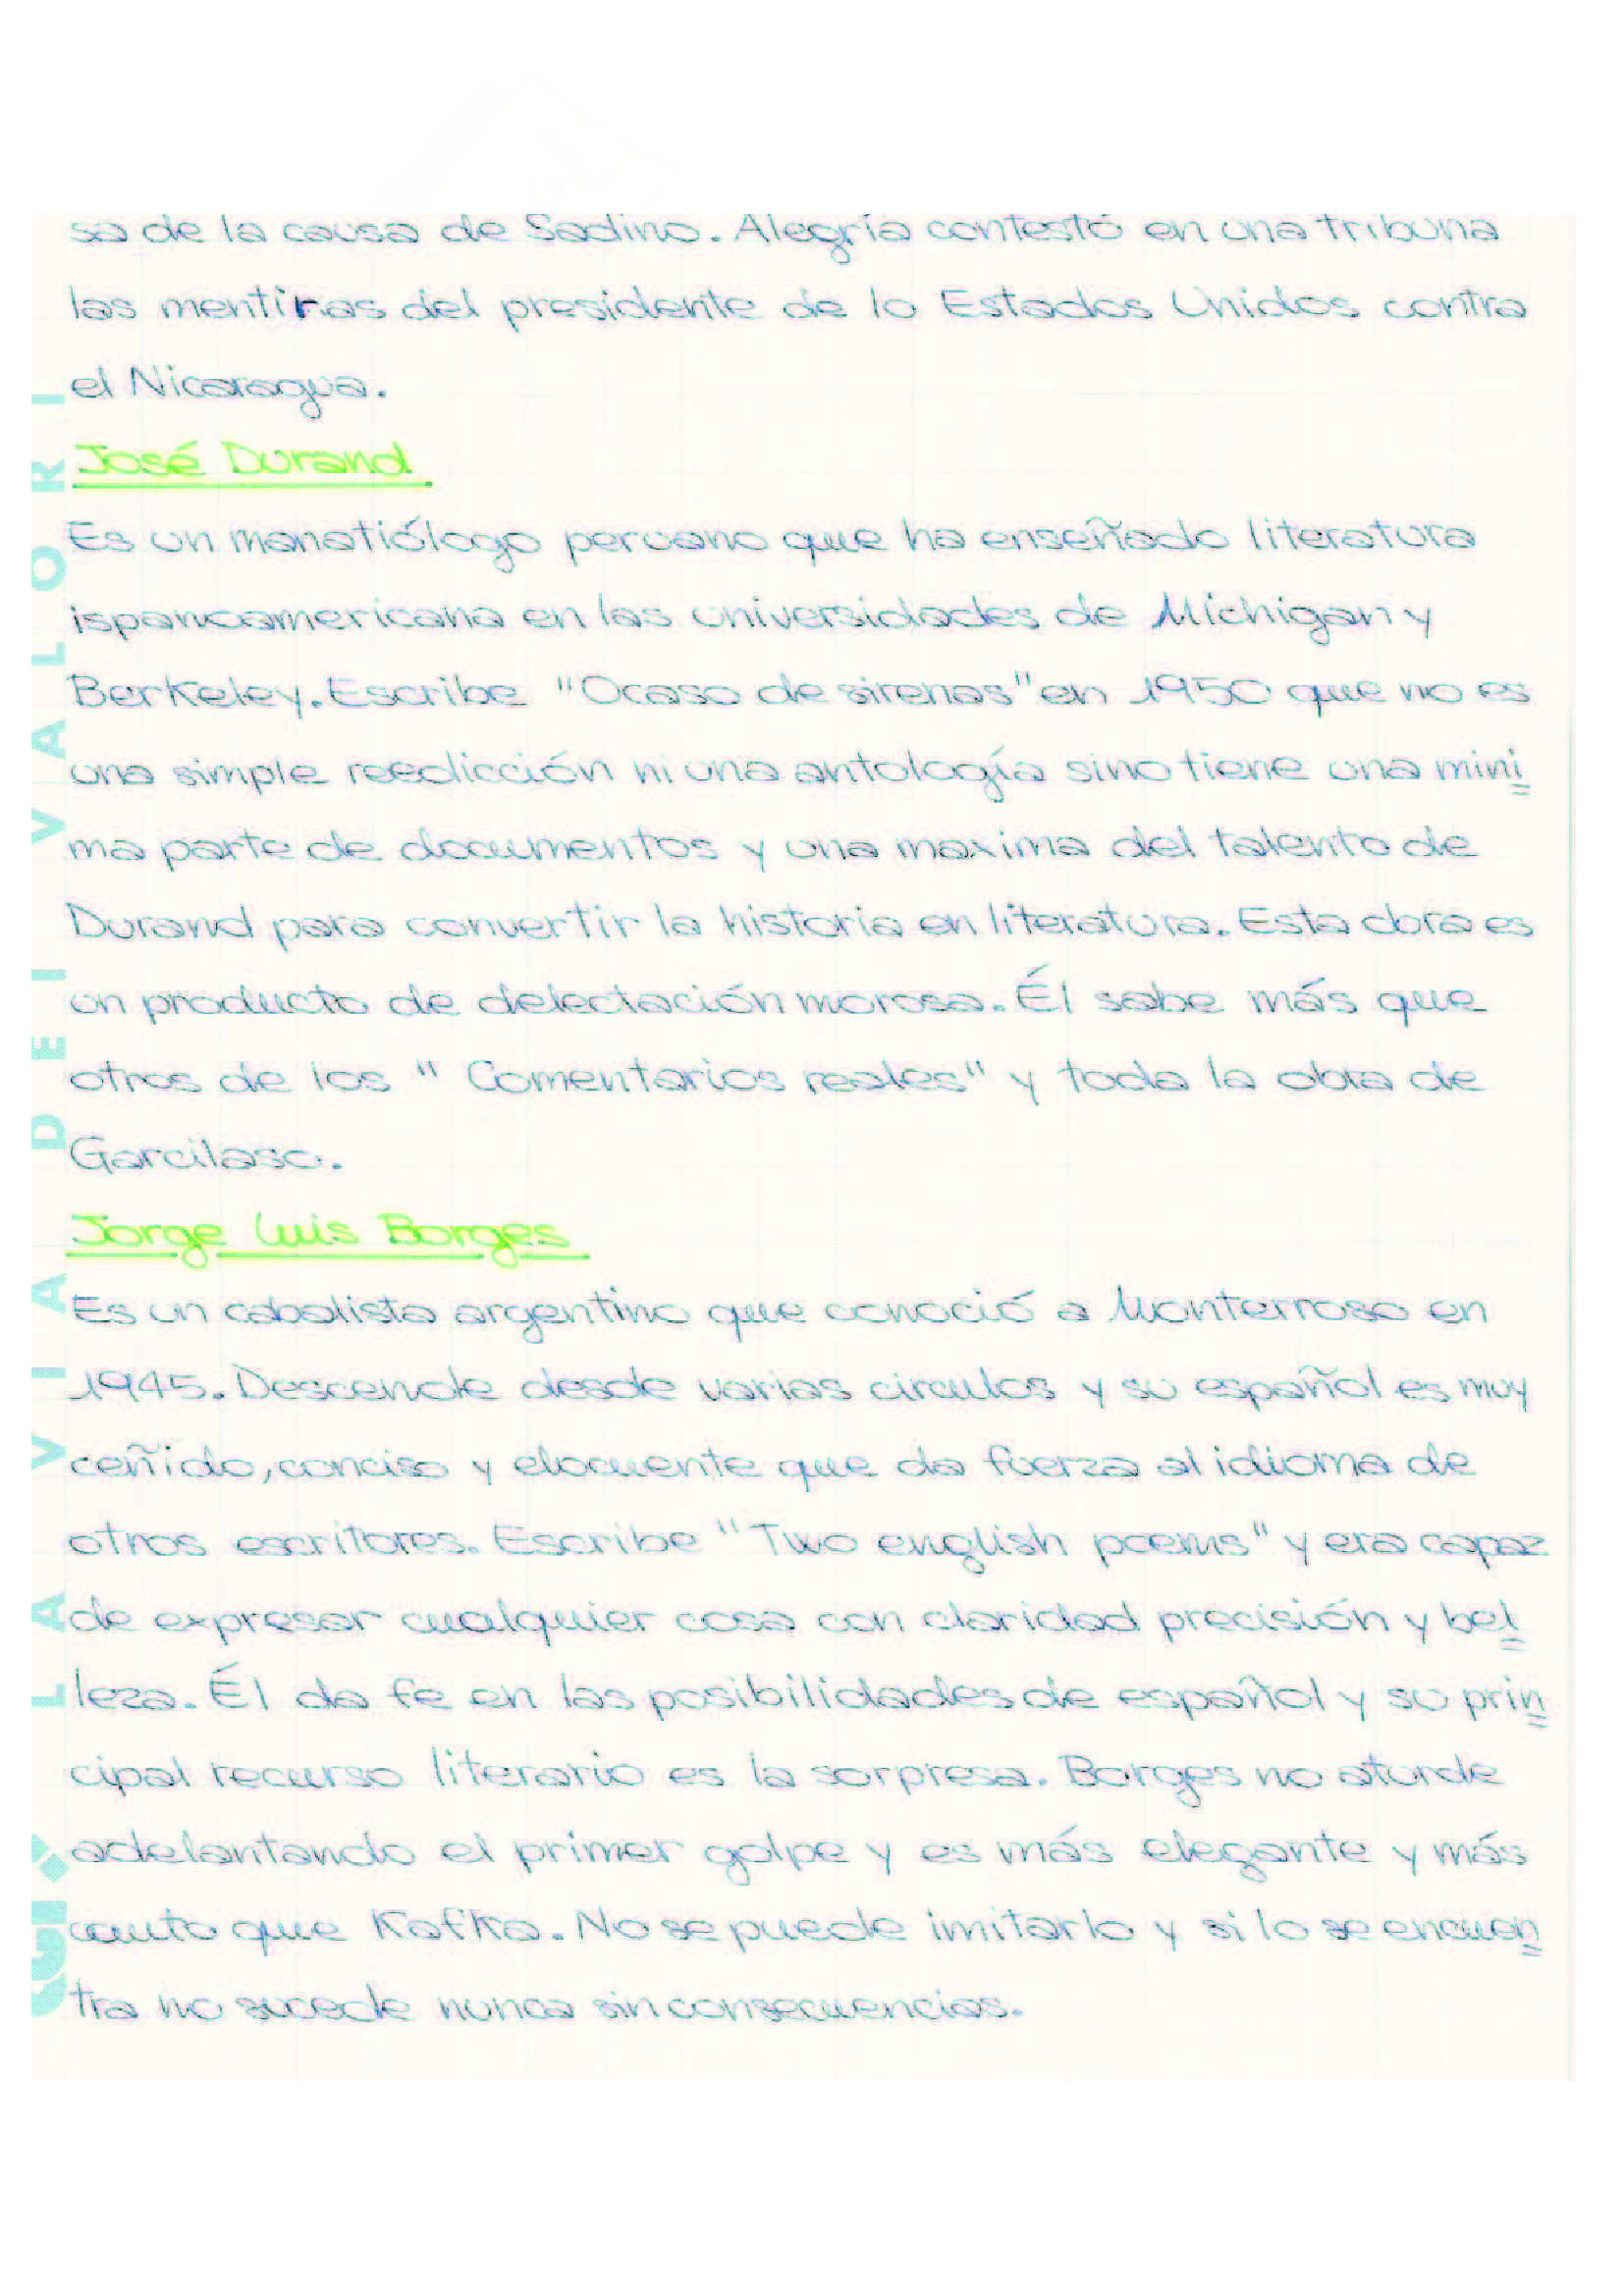 sa de la causa de Sadino. Alegría contestó en una tribuna
las mentiras del presidente de lo Estados Unidos contra
el Nicaragua.
José Durand
Es un manatiólogo peruano que ha enseñado literatura
ispanoamericana en las universidades de Michigan y
Berkeley. Escribe "Ocaso de sirenas" en 1950 que no es
una simple reedicción ni una antología sino tiene una mini
ma parte de documentos y una maxima del talento de
Durand para convertir la historia en literatura. Esta obra es
un producto de delectación morosa. Él sabe más que
otros de los "Comentarios reales" y toda la obra de
Garcilaso.
Jorge Luis Borges
Es un cabalista argentino que conoció a Monterroso en
1945. Descende desde varias circulos y su español es muy
ceñido, conciso y elocuente que da fuerza al idioma de
otros escritores. Escribe "Two english poems" y era capaz
de expresar cualquier cosa con claridad precisión y bel
leza. Él da fe en las posibilidades de español y su prin
cipal recurso literario es la sorpresa. Borges no aturde
adelantando el primer golpe y es más elegante y más
cauto que Kafka. No se puede imitarlo y si lo se encuen
tra no sucede nunca sin consecuencias.
LA VIA DEI VALORI